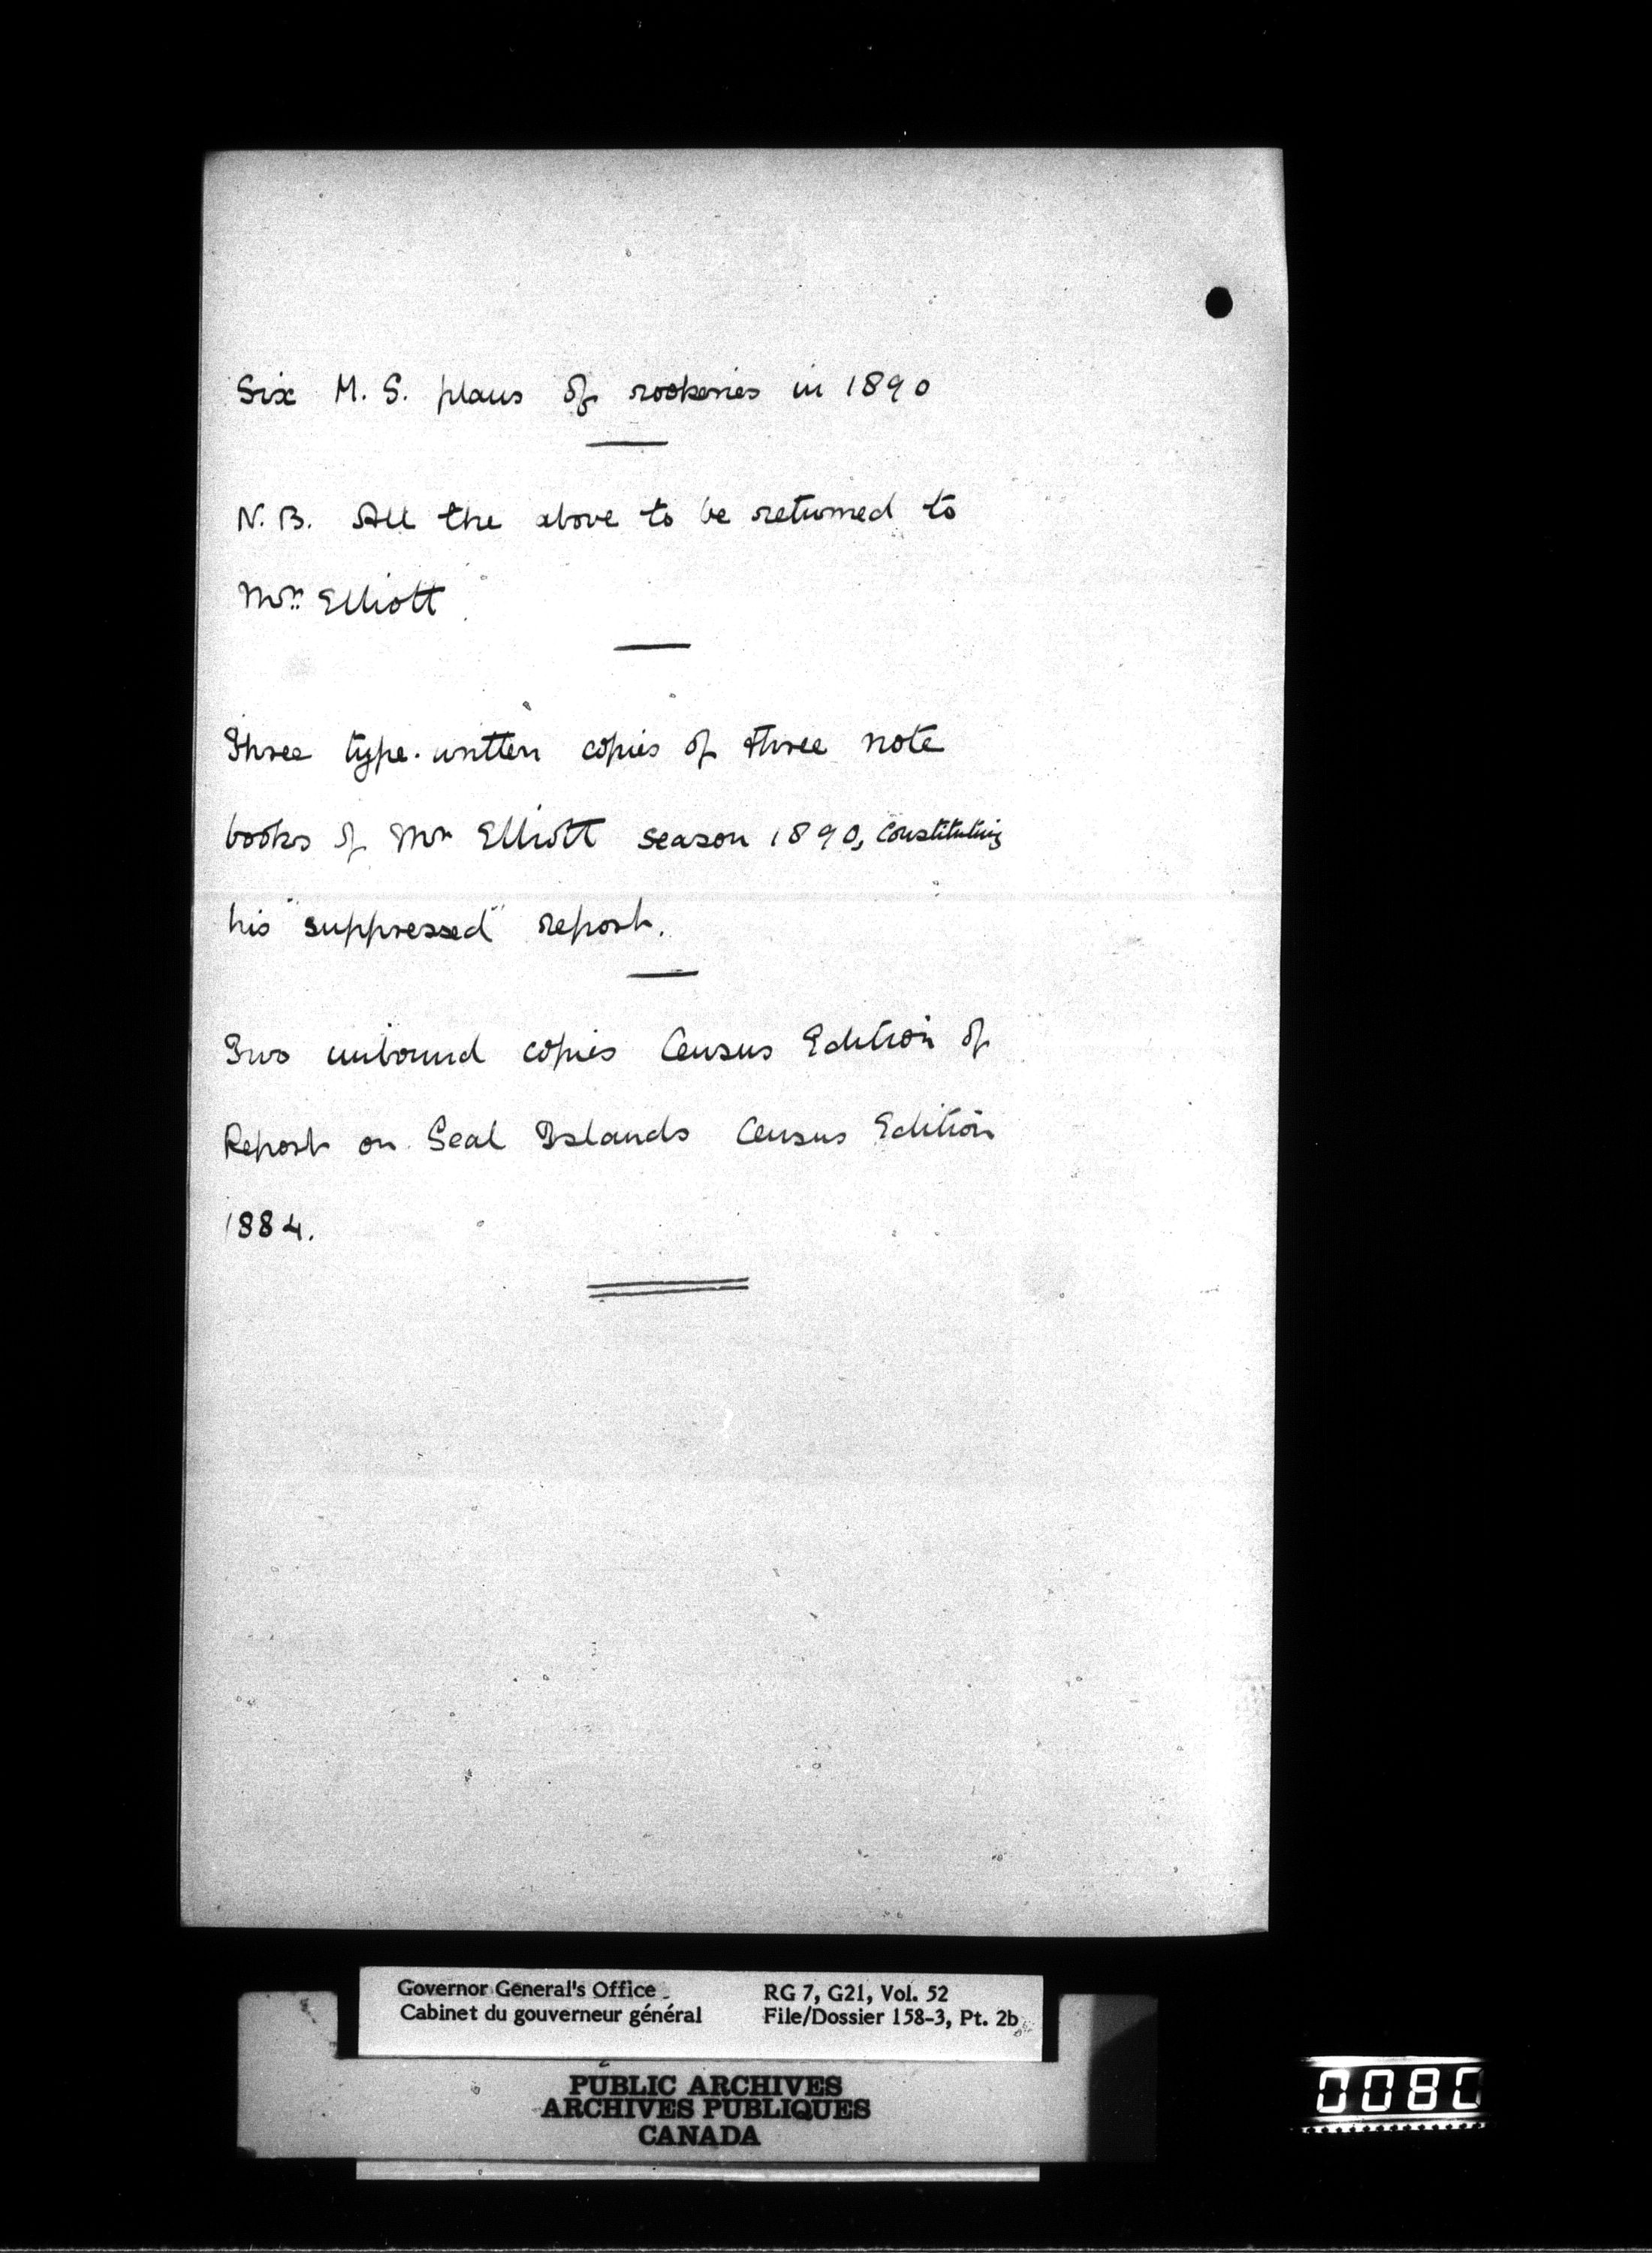 Six M. S. plans of rookeries in 1890
N. B. All the above to be returned to
Mr. Elliott
Three type-written copies of three note
books of Mr Elliott season 1890, constituting
his "suppressed" report.
Two unbound copies Census Edition of
Report on Seal Islands Census Edition
1884.
Governor General's Office
Cabinet du gouverneur général
RG 7, G21, Vol. 52
File/Dossier 158-3, Pt. 2b
PUBLIC ARCHIVES
ARCHIVES PUBLIQUES
CANADA
0080